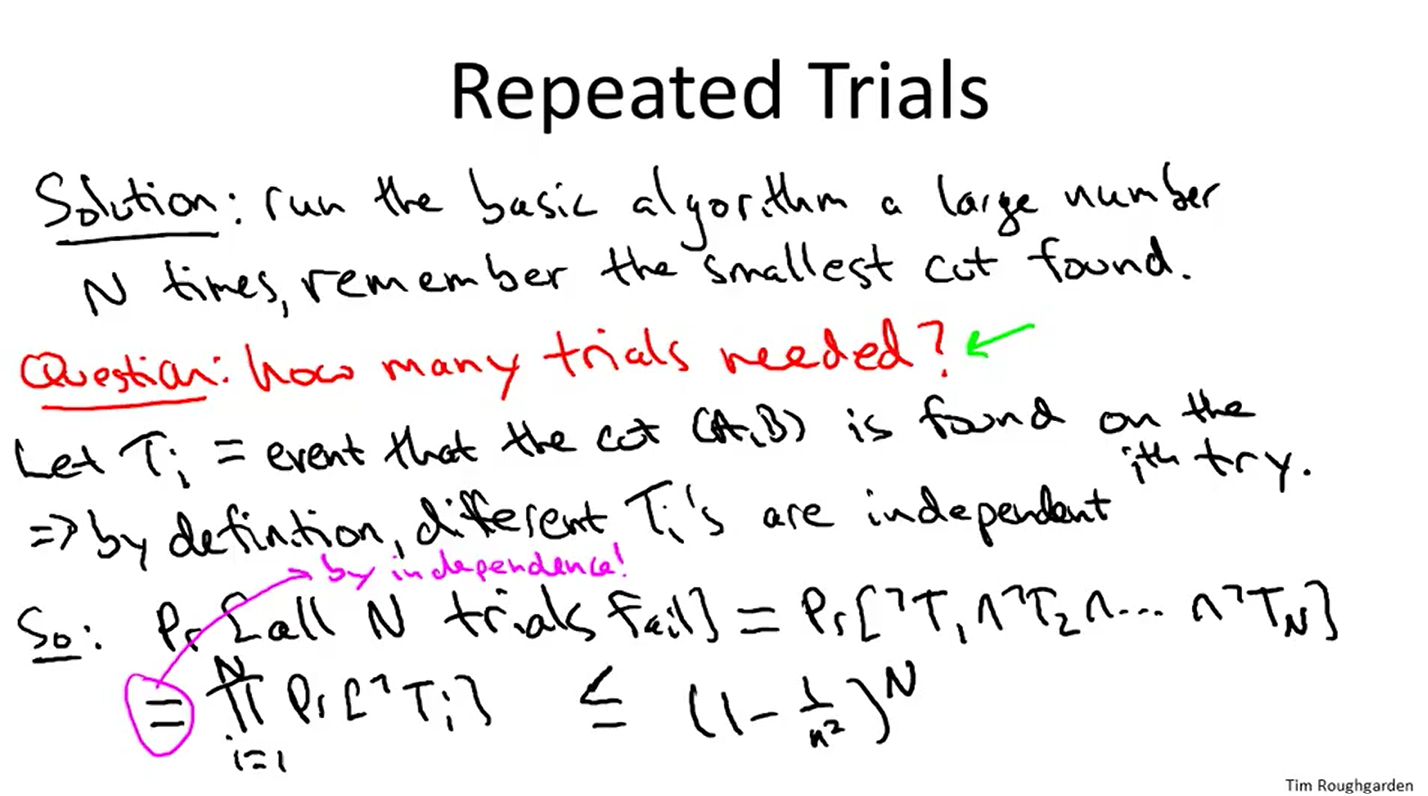 Repeated Trials
Solution: run the basic algorithm a large number
N times, remember the smallest cut found.
Question: how many trials needed?
Let Tᵢ = event that the cut (A,B) is found on the
ith try.
=> by defintion, different Tᵢ's are independent
by independence!
So: Pr[all N trials fail] = Pr[¬T₁ ∧ ¬T₂ ∧ ... ∧ ¬T_N]
= ∏ᵢ₌₁ᴺ Pr[¬Tᵢ] ≤ (1 - 1/n²)ᴺ
Tim Roughgarden